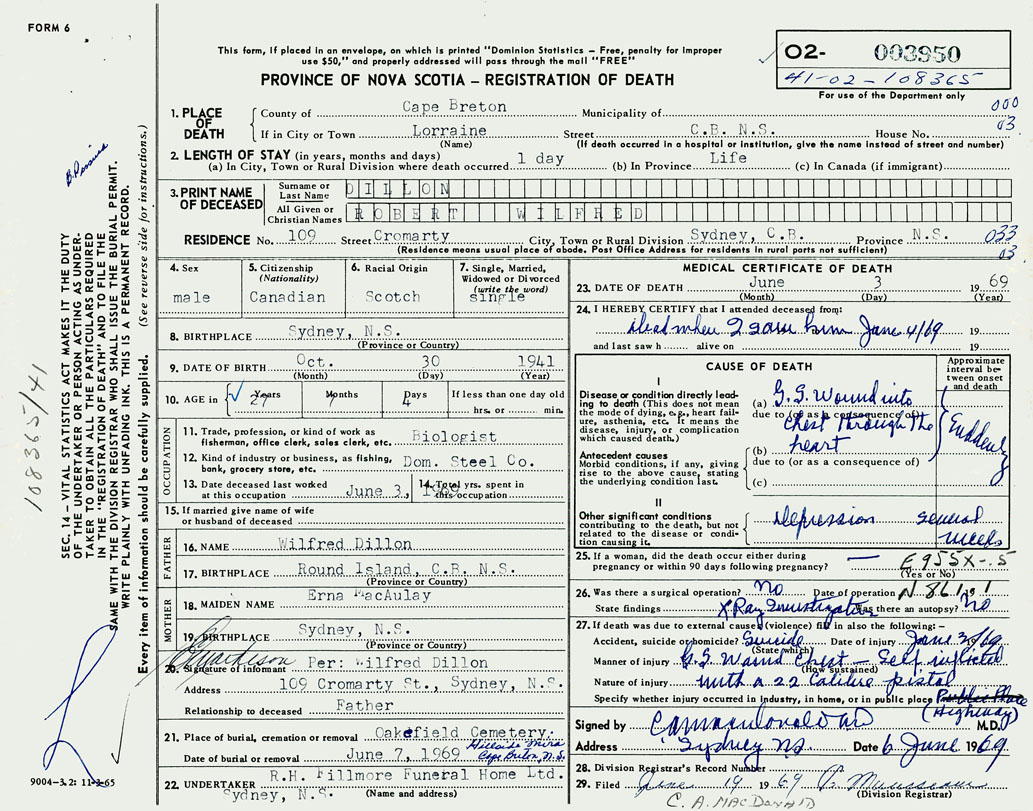 FORM 6
This form, if placed in an envelope, on which is printed "Dominion Statistics – Free, penalty for improper
use $50," and properly addressed will pass through the mail "FREE"
PROVINCE OF NOVA SCOTIA – REGISTRATION OF DEATH
02- 003950
41-02-108365
For use of the Department only
000
03
1. PLACE OF DEATH
County of Cape Breton Municipality of
If in City or Town Lorraine Street C.B. N.S. House No.
(Name) (If death occurred in a hospital or institution, give the name instead of street and number)
2. LENGTH OF STAY (in years, months and days)
(a) In City, Town or Rural Division where death occurred 1 day (b) In Province Life (c) In Canada (if immigrant)
3. PRINT NAME OF DECEASED
Surname or Last Name DILLON
All Given or Christian Names ROBERT WILFRED
RESIDENCE No. 109 Street Cromarty City, Town or Rural Division Sydney, C.B. Province N.S. 033
(Residence means usual place of abode. Post Office Address for residents in rural parts not sufficient) 03
4. Sex
male
5. Citizenship
(Nationality)
Canadian
6. Racial Origin
Scotch
7. Single, Married,
Widowed or Divorced
(write the word)
single
8. BIRTHPLACE Sydney, N.S.
(Province or Country)
9. DATE OF BIRTH Oct. 30 1941
(Month) (Day) (Year)
10. AGE in Years 27 Months 7 Days 4 If less than one day old
hrs. or min.
OCCUPATION
11. Trade, profession, or kind of work as
fisherman, office clerk, sales clerk, etc. Biologist
12. Kind of industry or business, as fishing,
bank, grocery store, etc. Dom. Steel Co.
13. Date deceased last worked
at this occupation June 3, 1969
14. Total yrs. spent in
this occupation
15. If married give name of wife
or husband of deceased
FATHER
16. NAME Wilfred Dillon
17. BIRTHPLACE Round Island, C.B. N.S.
(Province or Country)
MOTHER
18. MAIDEN NAME Erna MacAulay
19. BIRTHPLACE Sydney, N.S.
(Province or Country)
20. Signature of informant Per: Wilfred Dillon
Address 109 Cromarty St., Sydney, N.S.
Relationship to deceased Father
21. Place of burial, cremation or removal Oakefield Cemetery.
Hillside Mira
Cape Breton, N.S.
Date of burial or removal June 7, 1969
22. UNDERTAKER R.H. Fillmore Funeral Home Ltd.
Sydney, N.S. (Name and address)
MEDICAL CERTIFICATE OF DEATH
23. DATE OF DEATH June 3 1969
(Month) (Day) (Year)
24. I HEREBY CERTIFY that I attended deceased from:
dead when I saw him June 4/69 19
and last saw h alive on 19
CAUSE OF DEATH
Approximate interval between onset and death
I
Disease or condition directly leading to death (This does not mean the mode of dying, e.g., heart failure, asthenia, etc. It means the disease, injury, or complication which caused death.)
(a) G.S. Wound into
due to (or as a consequence of)
chest through the
(b) heart
due to (or as a consequence of)
(c)
Suddenly
Antecedent causes
Morbid conditions, if any, giving rise to the above cause, stating the underlying condition last.
II
Other significant conditions contributing to the death, but not related to the disease or condition causing it.
Depression several
weeks
25. If a woman, did the death occur either during
pregnancy or within 90 days following pregnancy? —
(Yes or No)
E955X-.5
26. Was there a surgical operation? No Date of operation 19
N861.1
State findings X Ray Investigation Was there an autopsy? No
27. If death was due to external causes (violence) fill in also the following:–
Accident, suicide or homicide? Suicide Date of injury June 3/69
(State which)
Manner of injury G.S. Wound Chest – Self inflicted
(How sustained)
Nature of injury with a 22 Calibre pistol
Specify whether injury occurred in industry, in home, or in public place Public Place
(Highway)
Signed by M.D.
Address Sydney NS Date 6 June 1969
28. Division Registrar's Record Number
29. Filed June 19 1969
(Division Registrar)
C. A. MACDONALD
108365/41
SEC. 14 – VITAL STATISTICS ACT MAKES IT THE DUTY
OF THE UNDERTAKER OR PERSON ACTING AS UNDER-
TAKER TO OBTAIN ALL THE PARTICULARS REQUIRED
IN THE "REGISTRATION OF DEATH" AND TO FILE THE
SAME WITH THE DIVISION REGISTRAR WHO SHALL ISSUE THE BURIAL PERMIT.
WRITE PLAINLY WITH UNFADING INK. THIS IS A PERMANENT RECORD.
Every item of information should be carefully supplied. (See reverse side for instructions.)
9004–3.2: 11-3-65